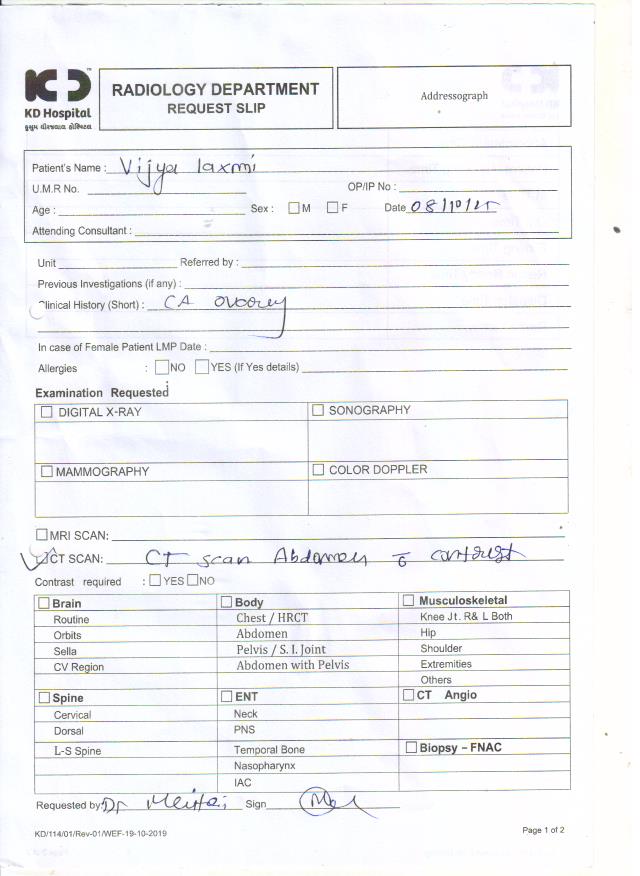 KD
KD Hospital
RADIOLOGY DEPARTMENT
REQUEST SLIP
Addressograph
Patient's Name : Vijya laxmi
U.M.R No. OP/IP No :
Age : Sex : M F Date 08/10/25
Attending Consultant :
Unit Referred by :
Previous Investigations (if any) :
Clinical History (Short) : CA ovarey
In case of Female Patient LMP Date :
Allergies : NO YES (If Yes details)
Examination Requested
DIGITAL X-RAY SONOGRAPHY
MAMMOGRAPHY COLOR DOPPLER
MRI SCAN:
CT SCAN: CT scan Abdomen c̄ contrast
Contrast required : YES NO
Brain Body Musculoskeletal
Routine Chest / HRCT Knee Jt. R& L Both
Orbits Abdomen Hip
Sella Pelvis / S. I. Joint Shoulder
CV Region Abdomen with Pelvis Extremities
Others
Spine ENT CT Angio
Cervical Neck
Dorsal PNS
L-S Spine Temporal Bone Biopsy – FNAC
Nasopharynx
IAC
Requested by: Dr Sign
KD/114/01/Rev-01/WEF-19-10-2019 Page 1 of 2